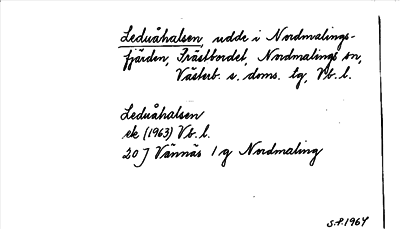 Leduåhalsen, udde i Nordmalings-
fjärden, Prästbordet, Nordmalings sn,
Västerb. s. doms. lg, Vb. l.
Leduåhalsen
ek (1963) Vb. l.
20 J Vännäs 1 g Nordmaling
S.P. 1964